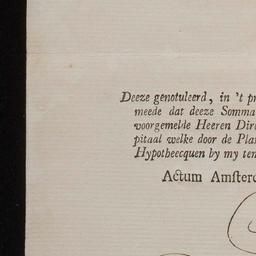 Deeze genotuleerd, in 't pr
meede dat deeze Somma
voorgemelde Heeren Dire
pitaal welke door de Plan
Hypotheecquen by my ten
Actum Amsterd